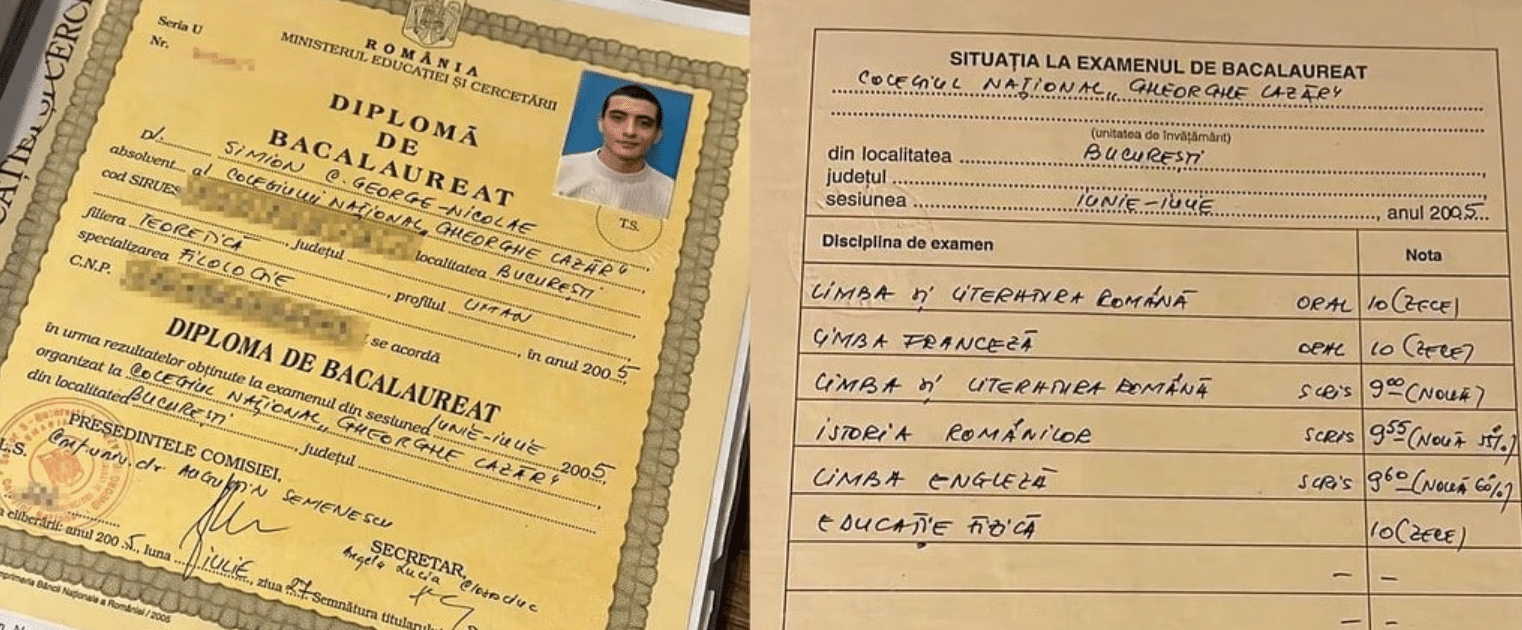 Seria U
Nr.
ROMÂNIA
MINISTERUL EDUCAȚIEI ȘI CERCETĂRII
DIPLOMĂ
DE
BACALAUREAT
D/. SIMION C. GEORGE-NICOLAE
absolvent al COLEGIULUI NAȚIONAL „GHEORGHE LAZĂR”
cod SIRUES localitatea BUCUREȘTI
filiera TEORETICĂ, județul
specializarea FILOLOGIE, profilul UMAN
C.N.P. , în anul 2005,
se acordă
DIPLOMA DE BACALAUREAT
în urma rezultatelor obținute la examenul din sesiunea IUNIE-IULIE 2005
organizat la COLEGIUL NAȚIONAL „GHEORGHE LAZĂR”
din localitatea BUCUREȘTI, județul
T.S.
PREȘEDINTELE COMISIEI,
SEMENESCU
L.S.
SECRETAR,
Angela Lucia
eliberării: anul 2005, luna IULIE, ziua 27 Semnătura titularului
Imprimeria Băncii Naționale a României / 2005
SITUAȚIA LA EXAMENUL DE BACALAUREAT
COLEGIUL NAȚIONAL „GHEORGHE LAZĂR”
(unitatea de învățământ)
din localitatea BUCUREȘTI
județul
sesiunea IUNIE-IULIE, anul 2005
Disciplina de examen Nota
LIMBA ȘI LITERATURA ROMÂNĂ ORAL 10 (ZECE)
LIMBA FRANCEZĂ ORAL 10 (ZECE)
LIMBA ȘI LITERATURA ROMÂNĂ SCRIS 9⁰⁰ (NOUĂ)
ISTORIA ROMÂNILOR SCRIS 9⁵⁵ (NOUĂ 55%)
LIMBA ENGLEZĂ SCRIS 9⁶⁰ (NOUĂ 60%)
EDUCAȚIE FIZICĂ 10 (ZECE)
– –
– –